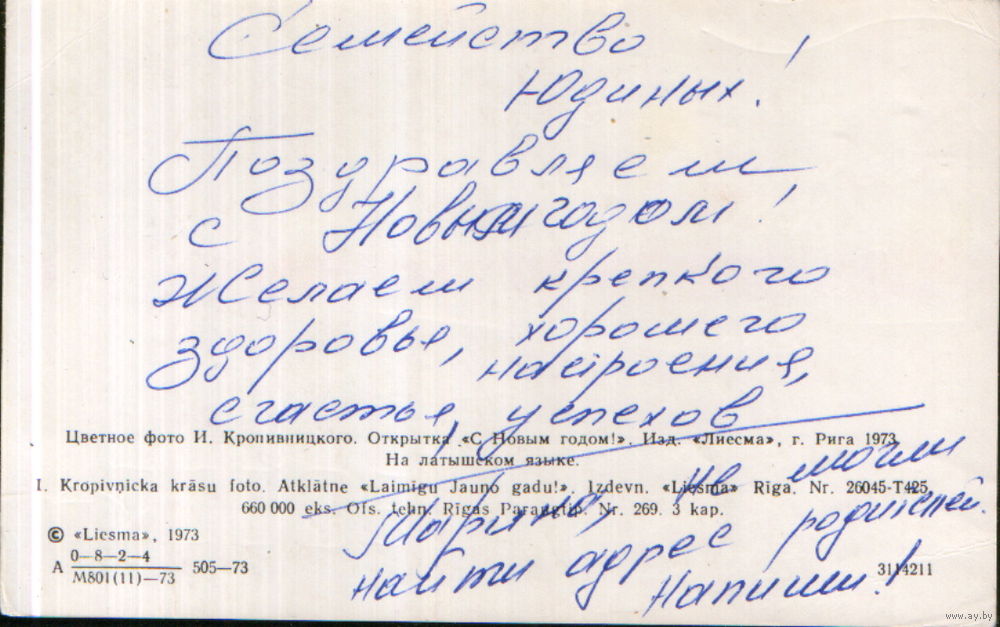 Семейство
Юдиных!
Поздравляем
с Новым годом!
Желаем крепкого
здоровья, хорошего
настроения,
счастья, успехов
Цветное фото И. Кропивницкого. Открытка «С Новым годом!». Изд. «Лиесма», г. Рига 1973
На латышском языке.
I. Kropivņicka krāsu foto. Atklātne «Laimīgu Jauno gadu!». Izdevn. «Liesma» Rīgā. Nr. 26045-T425
660 000 eks. Ofs. tehn. Rīgas Paraugtip. Nr. 269. 3 kap.
Марина, не могли
найти адрес родителей.
Напиши!
© «Liesma», 1973
А 0—8—2—4
М801(11)—73 505—73
3114211
www.ay.by